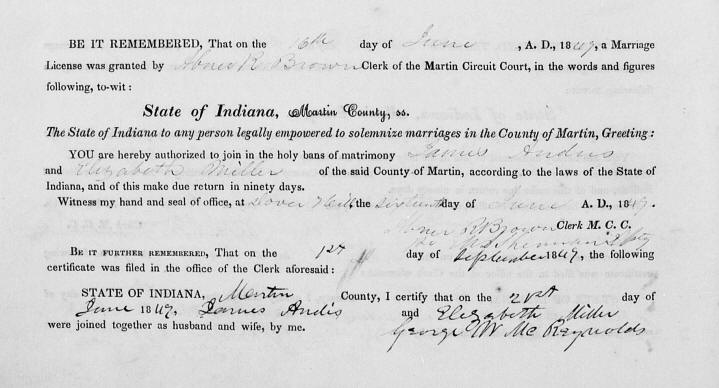 BE IT REMEMBERED, That on the 16th day of June, A. D., 1847, a Marriage
License was granted by Abner R Brown Clerk of the Martin Circuit Court, in the words and figures
following, to-wit:
State of Indiana, Martin County, ss.
The State of Indiana to any person legally empowered to solemnize marriages in the County of Martin, Greeting:
YOU are hereby authorized to join in the holy bans of matrimony James Andis
and Elizabeth Miller of the said County of Martin, according to the laws of the State of
Indiana, and of this make due return in ninety days.
Witness my hand and seal of office, at Dover Hill, the Sixteenth day of June A. D., 1847.
Abner R Brown Clerk M. C. C.
BE IT FURTHER REMEMBERED, That on the 1st day of September 1847, the following
certificate was filed in the office of the Clerk aforesaid:
STATE OF INDIANA, Martin County, I certify that on the 21st day of
June 1847, James Andis and Elizabeth Miller
were joined together as husband and wife, by me. George W McReynolds